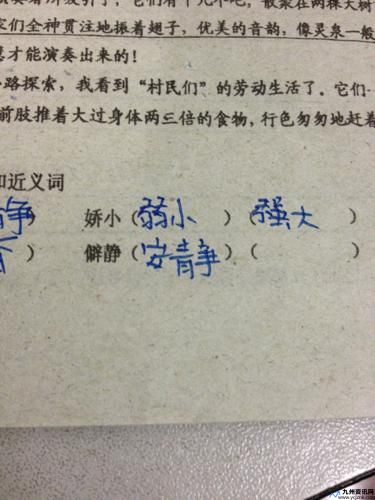 它们有十几不吧,散聚在两棵大树
它们全神贯注地振着翅子,优美的音韵,像灵泉一般
才能演奏出来的!
路探索,我看到“村民们”的劳动生活了。它们一
前肢推着大过身体两三倍的食物,行色匆匆地赶着
和近义词
静) 娇小(弱小)(强大)
) 僻静(安静)( )
九州资讯网